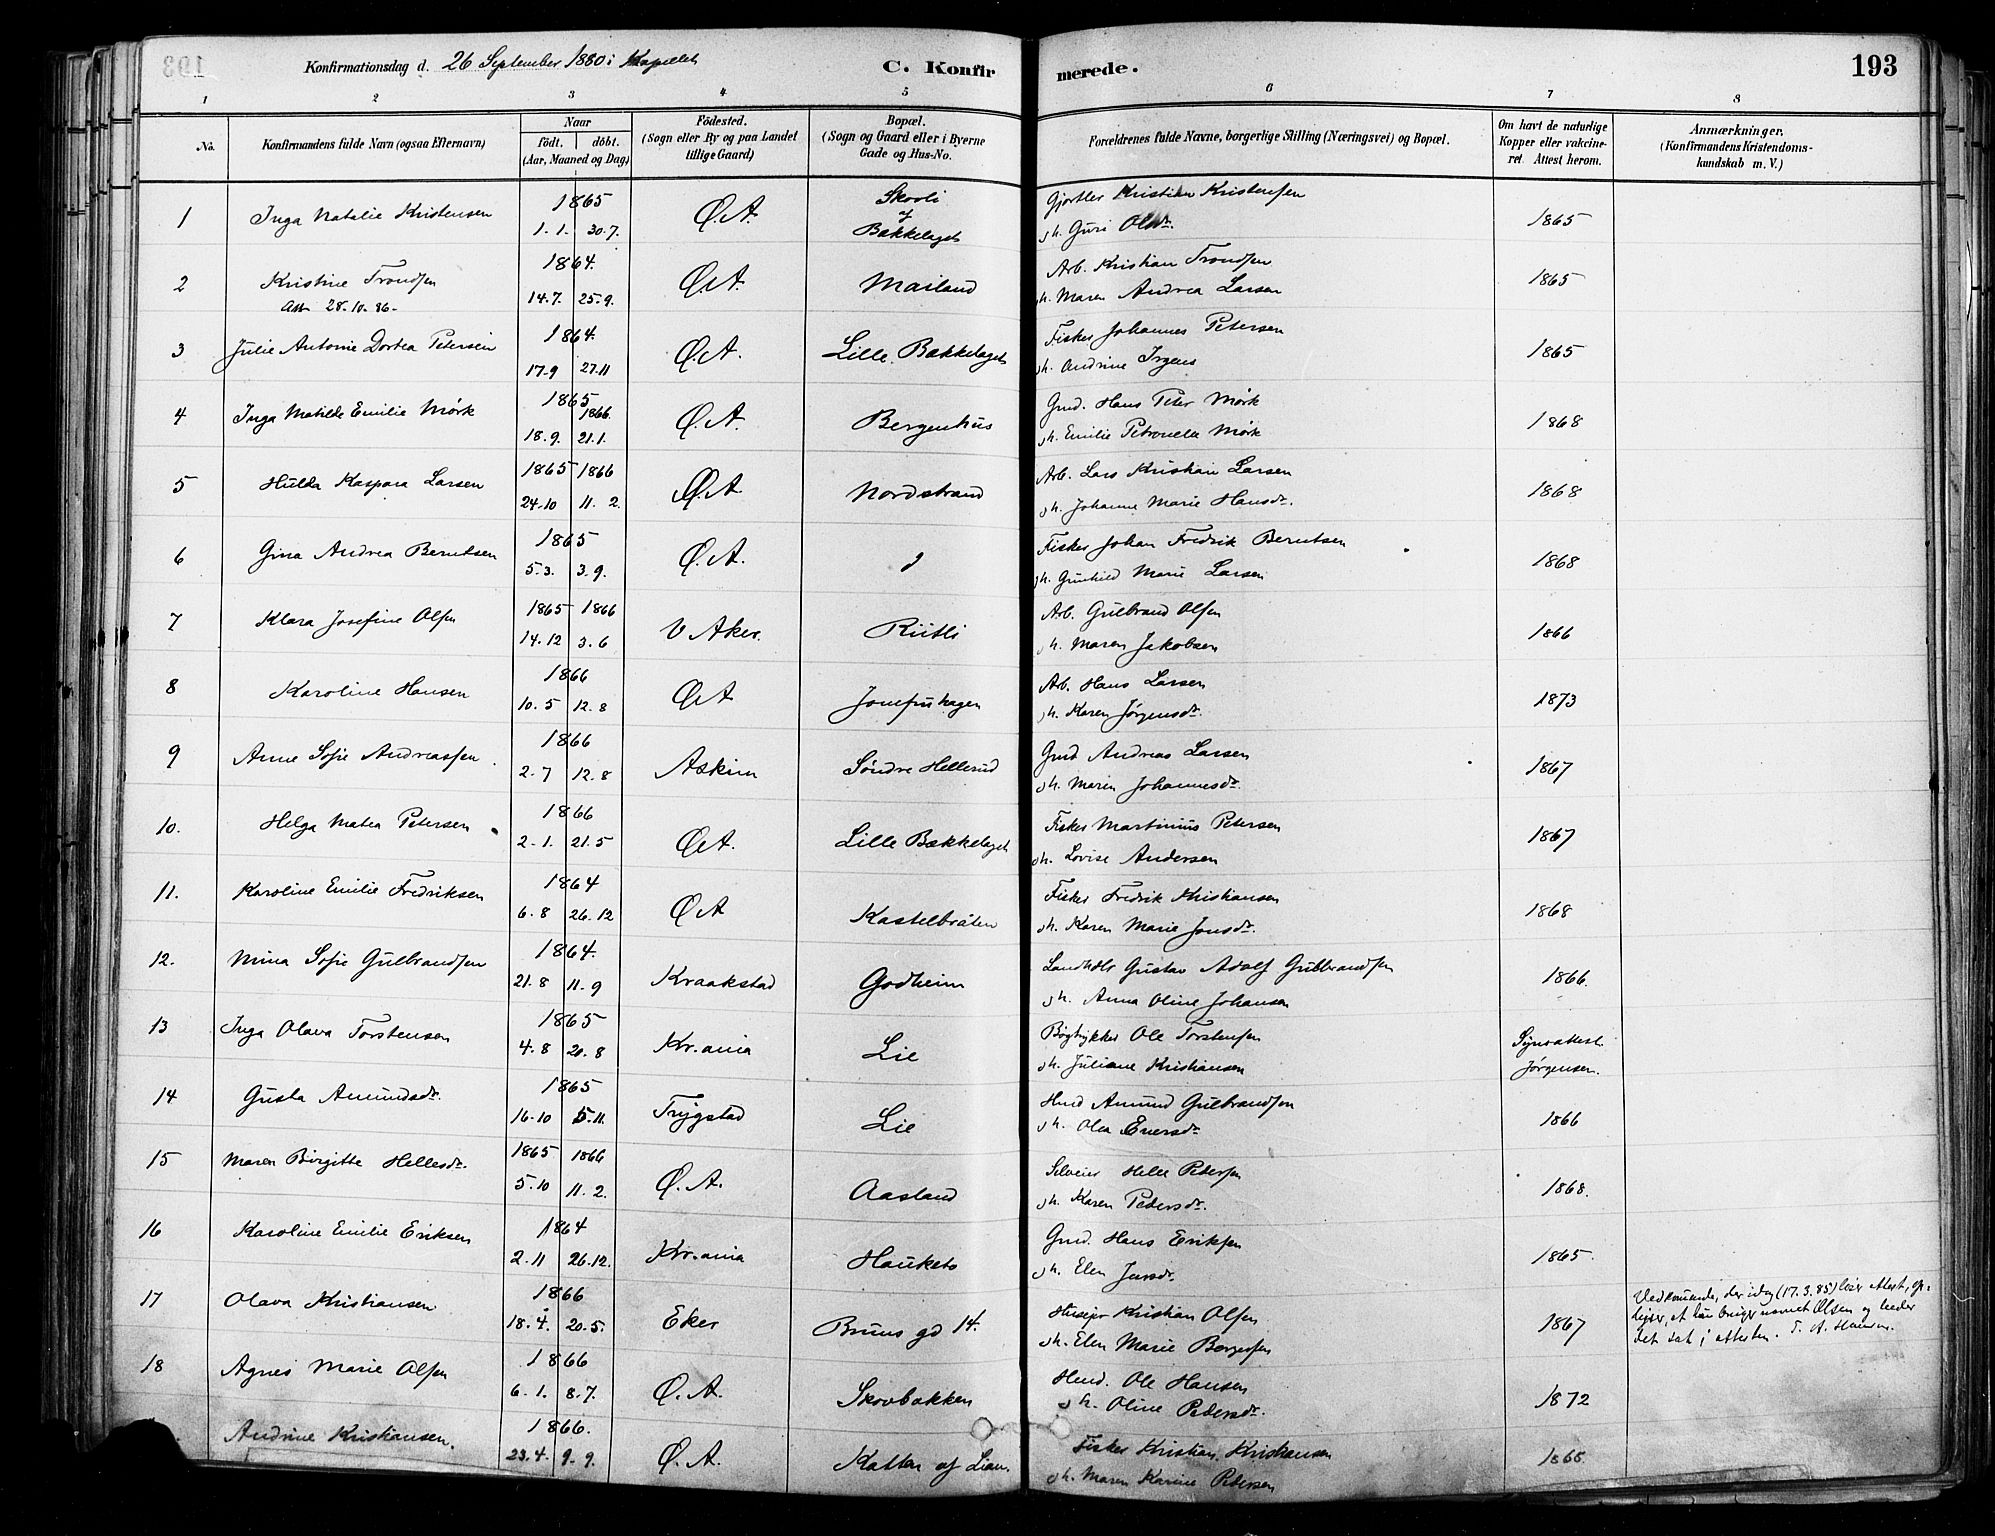 193
Konfirmationsdag d. 26 September 1880 i Kapellet
C. Konfirmerede.
1 2 3 4 5 6 7 8
No.
Konfirmandens fulde Navn (ogsaa Efternavn)
Naar
født. døbt.
(Aar, Maaned og Dag)
Fødested.
(Sogn eller By og paa Landet
tillige Gaard)
Bopæl.
(Sogn og Gaard eller i Byerne
Gade og Hus-No.
Forældrenes fulde Navne, borgerlige Stilling (Næringsvei) og Bopæl.
Om havt de naturlige
Kopper eller vakcine-
ret. Attest herom.
Anmærkninger.
(Konfirmandens Kristendoms-
kundskab m. V.)
1 Inga Natalie Kristensen 1865 1.1. 30.7. Ø.A. Skovli af Bækkelaget
Gjørtler Kristian Kristensen
o h. Guri Olsdr. 1865
2 Kristine Trondsen 1864. 14.7. 25.9. Ø.A. Mailand
Att 28.10.86.
Arb. Kristian Trondsen
o h. Maren Andrea Larsen 1865
3 Julie Antonie Dortea Petersen 1864. 17.9 27.11 Ø.A. Lille Bækkelaget
Fisker Johannes Petersen
o h. Andrine Irgens 1865
4 Inga Matilde Emilie Mørk 1865 1866. 18.9. 21.1. Ø.A. Bergenhus
Gmd. Hans Peter Mørk
o h. Emilie Petronela Mørk 1868
5 Hulda Kaspara Larsen 1865 1866 24.10 11. 2. Ø.A. Nordstrand
Arb. Lars Kristian Larsen
o h. Johanne Marie Hansdr. 1868
6 Gina Andrea Berntsen 1865 5.3. 3.9. Ø.A.
Fisker Johan Fredrik Berntsen
o h. Gunhild Marie Larsen 1868
7 Klara Josefine Olsen 1865 1866 14.12 3.6 V Aker. Rütli
Arb. Gulbrand Olsen
o h. Maren Jakobsen 1866
8 Karoline Hansen 1866 10.5 12.8 Ø.A Josefinehagen
Arb. Hans Larsen
o h. Karen Jørgensdr. 1873
9 Anne Sofie Andreassen 1866 2.7 12.8 Askim Søndre Hellerud
Gmd Andreas Larsen
o h. Maren Johannesdr. 1867
10. Helga Matea Petersen 1866 2.1. 21.5 Ø.A. Lille Bækkelaget
Fisker Martinius Petersen
o h. Lovise Andersen 1867
11. Karoline Emilie Fredriksen 1864 6.8 26.12 Ø.A Kastelbråten
Fisker Fredrik Kristiansen
o h. Karen Marie Jonsdr. 1868
12. Mina Sofie Gulbrandsen 1864. 21.8 11.9 Kraakstad Godheim
Landhdlr Gustav Adolf Gulbrandsen
o h. Anna Oline Johansen 1866.
13 Inga Olava Torstensen 1865 4.8 20.8 Kr.ania Lie
Bogtrykker Ole Torstensen
o h. Juliane Kristiansen Synsattest. Jørgensen.
14 Gusta Amundsdr. 1865 16.10 5.11. Trygstad Lie
Hmd Amund Gulbrandsen
o h. Olea Eversdr. 1866
15 Maren Birgitte Hellesdr. 1865 1866 5.10 11.2. Ø.A. Aasland
Selveier Helle Pedersen
o h. Karen Pedersdr. 1868.
16 Karoline Emilie Eriksen 1864 2.11 26.12. Kr.ania Hauketo
Gmd. Hans Eriksen
o h. Elen Jensdr. 1865.
17 Olava Kristiansen 1866 18.4. 20.5. Eker Bruns gd 14.
Husejer Kristian Olsen
o h. Elen Marie Borgersen 1867
Vedkommende, der idag (17.3.85) løser attest, op-
lyser, at hun bruger navnet Olsen og beder
det sat i attesten. T. A. Hansen.
18 Agnes Marie Olsen 1866 6.1. 8.7. Ø.A. Skovbakken
Hmd. Ole Hansen
o h. Oline Pedersdr. 1872
Andrine Kristiansen. 1866. 23.4. 9.9. Ø.A. Katten af Lian.
Fisker Kristian Kristiansen
o h. Maren Karine Pedersen 1866.